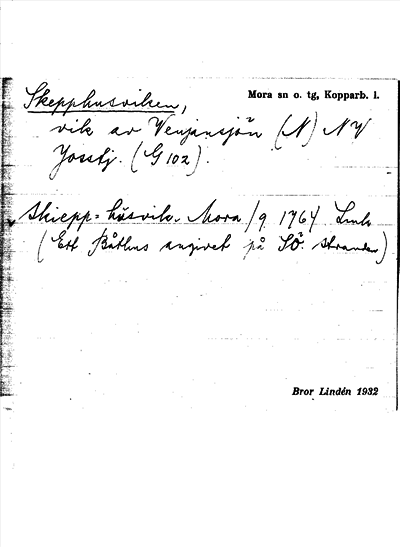 Skepphusviken, Mora sn o. tg, Kopparb. l.
vik av Venjansjön (N) NV
(G 102).
Skiepp= hüsvik. Mora /9 1764 Lmk
(Ett Båthus angivet på SÖ. stranden)
Bror Lindén 1932